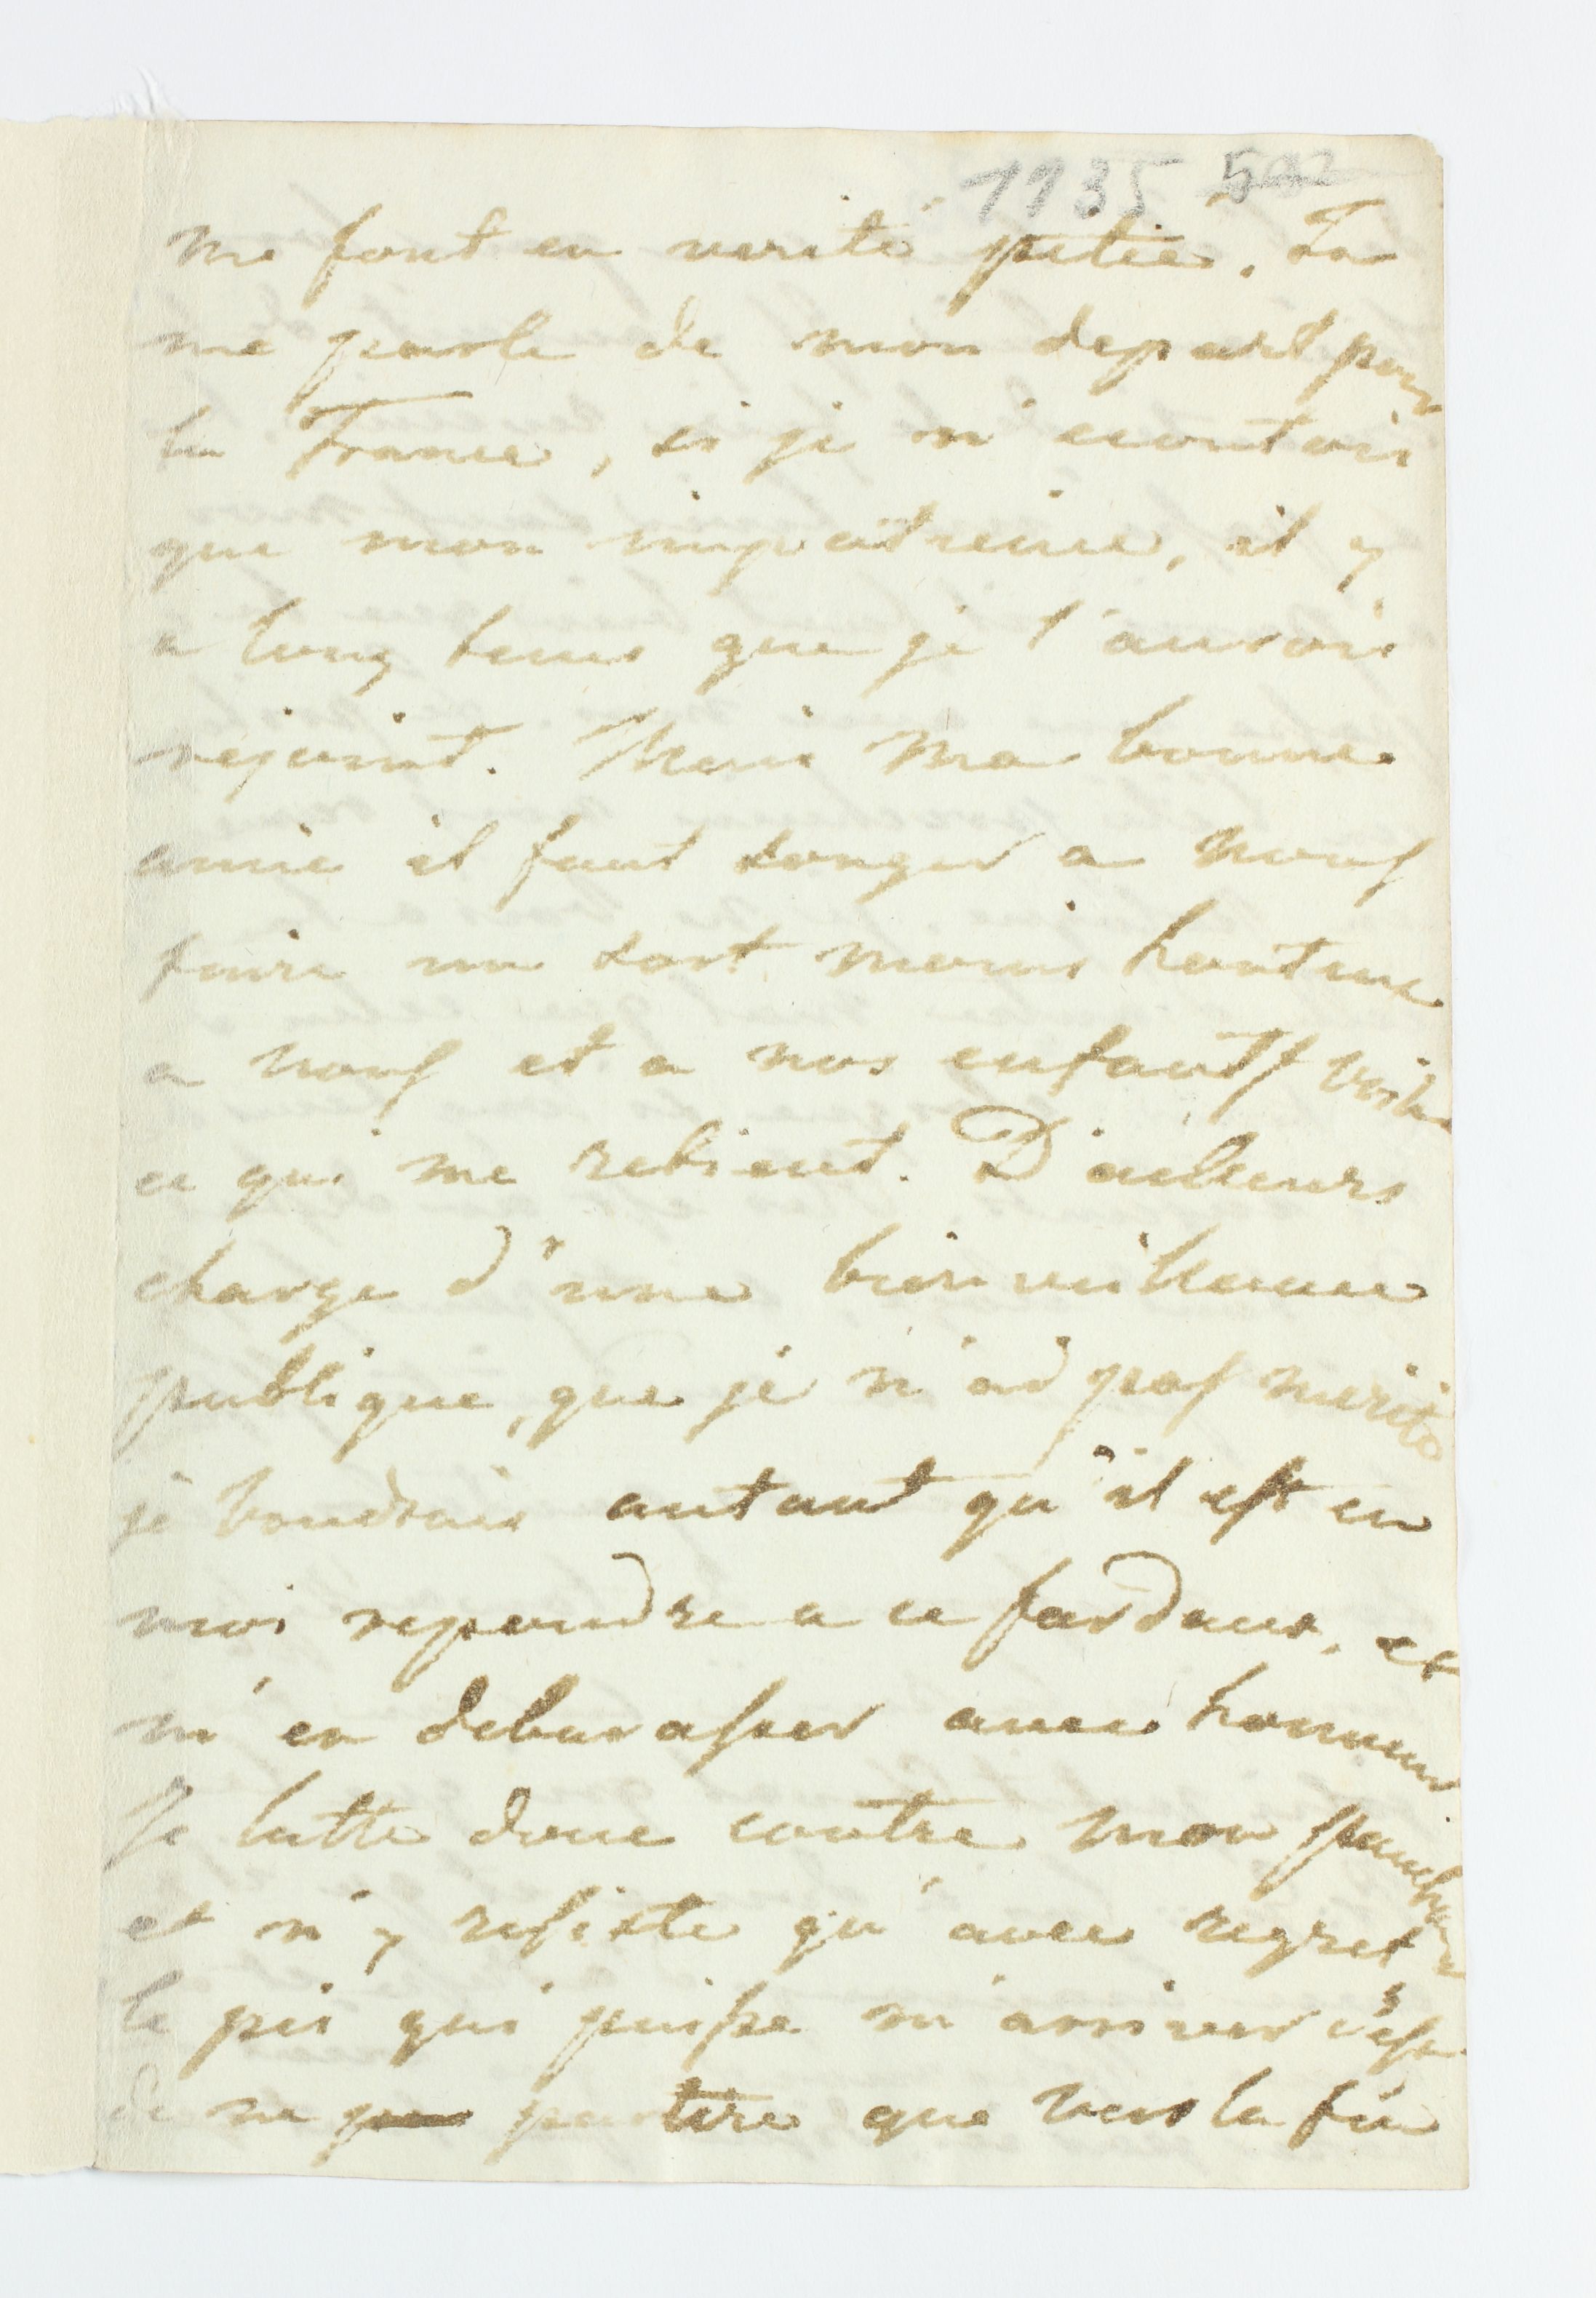 1135 502
me font en verité pitié. Tu
me parle de mon depart pour
la France, si je n'ecoutois
que mon impatience, il y
a long tems que je t'aurois
rejoint. Mais ma bonne
amie il faut songer a nous
faire un sort moins honteux
a nous et a nos enfants voila
ce qui me retient. D'ailleurs
charge d'une bienveillance
publique, que je n'ai pas merité
je voudrais autant qu'il est en
moi repondre a ce fardeau, et
m'en debarasser avec honneur
Je lutte donc contre mon panchant
et n'y resiste qu'avec regret
le pis qui puisse m'arriver c'est
de ne partire que vers la fin